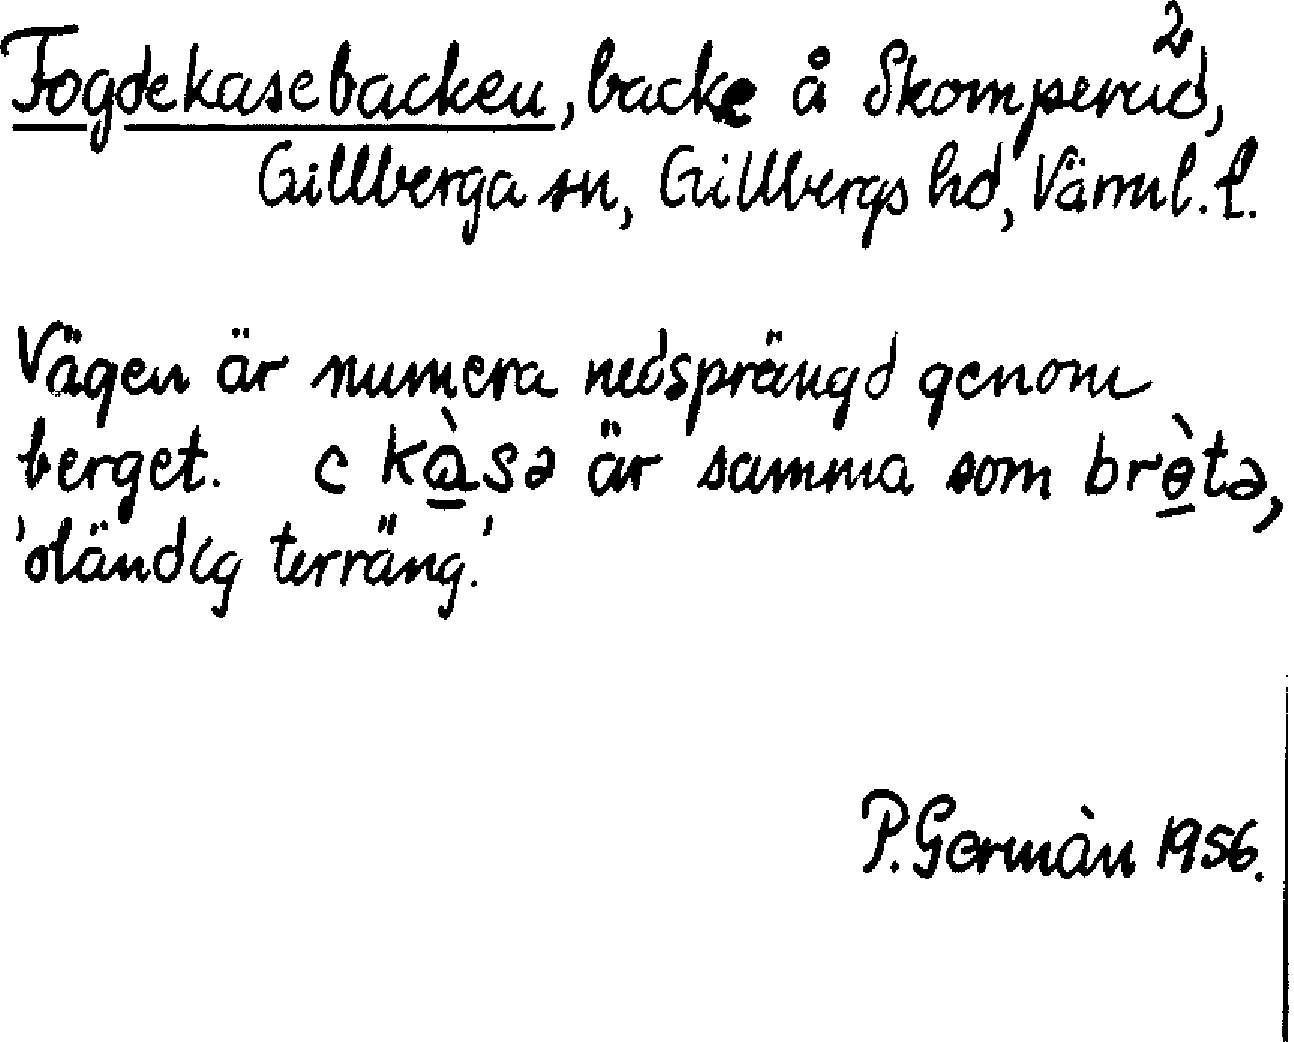 Fogdekasebacken, backe å Skomperud²,
Gillberga sn, Gillbergs hd, Värml. l.
Vägen är numera nedsprängd genom
berget. c kàsə är samma som brɵ̀tə,
'oländig terräng.'
P. Germàn 1956.